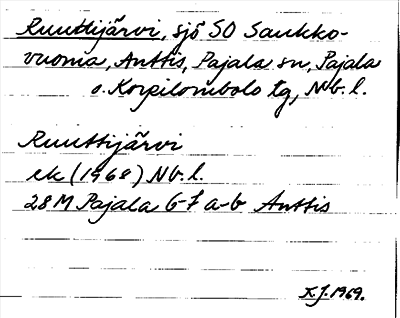 Ruuttijärvi, sjö SO Saukko-
vuoma, Anttis, Pajala sn, Pajala
o. Korpilombolo tg, Nb. l.
Ruuttijärvi
ek (1968) Nb. l.
28 M Pajala 6-7 a-b Anttis
K.J. 1969.